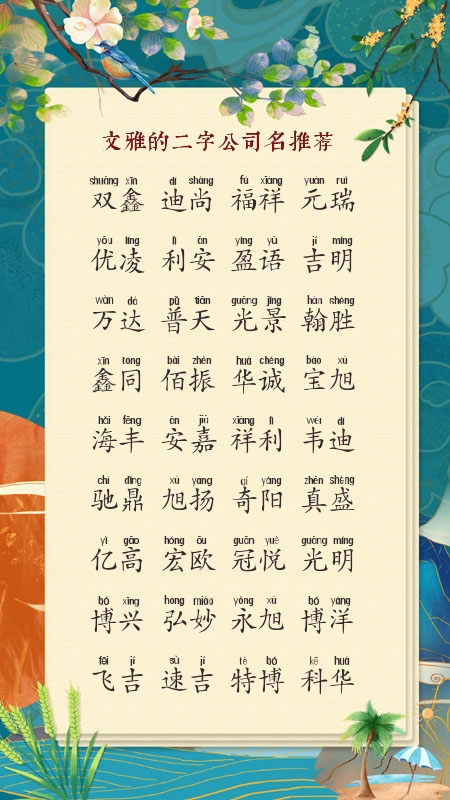 文雅的二字公司名推荐
shuāng xīn dí shàng fú xiáng yuán ruì
双鑫 迪尚 福祥 元瑞
yōu líng lì ān yíng yǔ jí míng
优凌 利安 盈语 吉明
wàn dá pǔ tiān guāng jǐng hàn shèng
万达 普天 光景 翰胜
xīn tóng bǎi zhèn huá chéng bǎo xù
鑫同 佰振 华诚 宝旭
hǎi fēng ān jiā xiáng lì wéi dí
海丰 安嘉 祥利 韦迪
chí dǐng xù yáng qí yáng zhēn shèng
驰鼎 旭扬 奇阳 真盛
yì gāo hóng ōu guān yuè guāng míng
亿高 宏欧 冠悦 光明
bó xīng hóng miào yǒng xù bó yáng
博兴 弘妙 永旭 博洋
fēi jí sù jí tè bó kē huá
飞吉 速吉 特博 科华